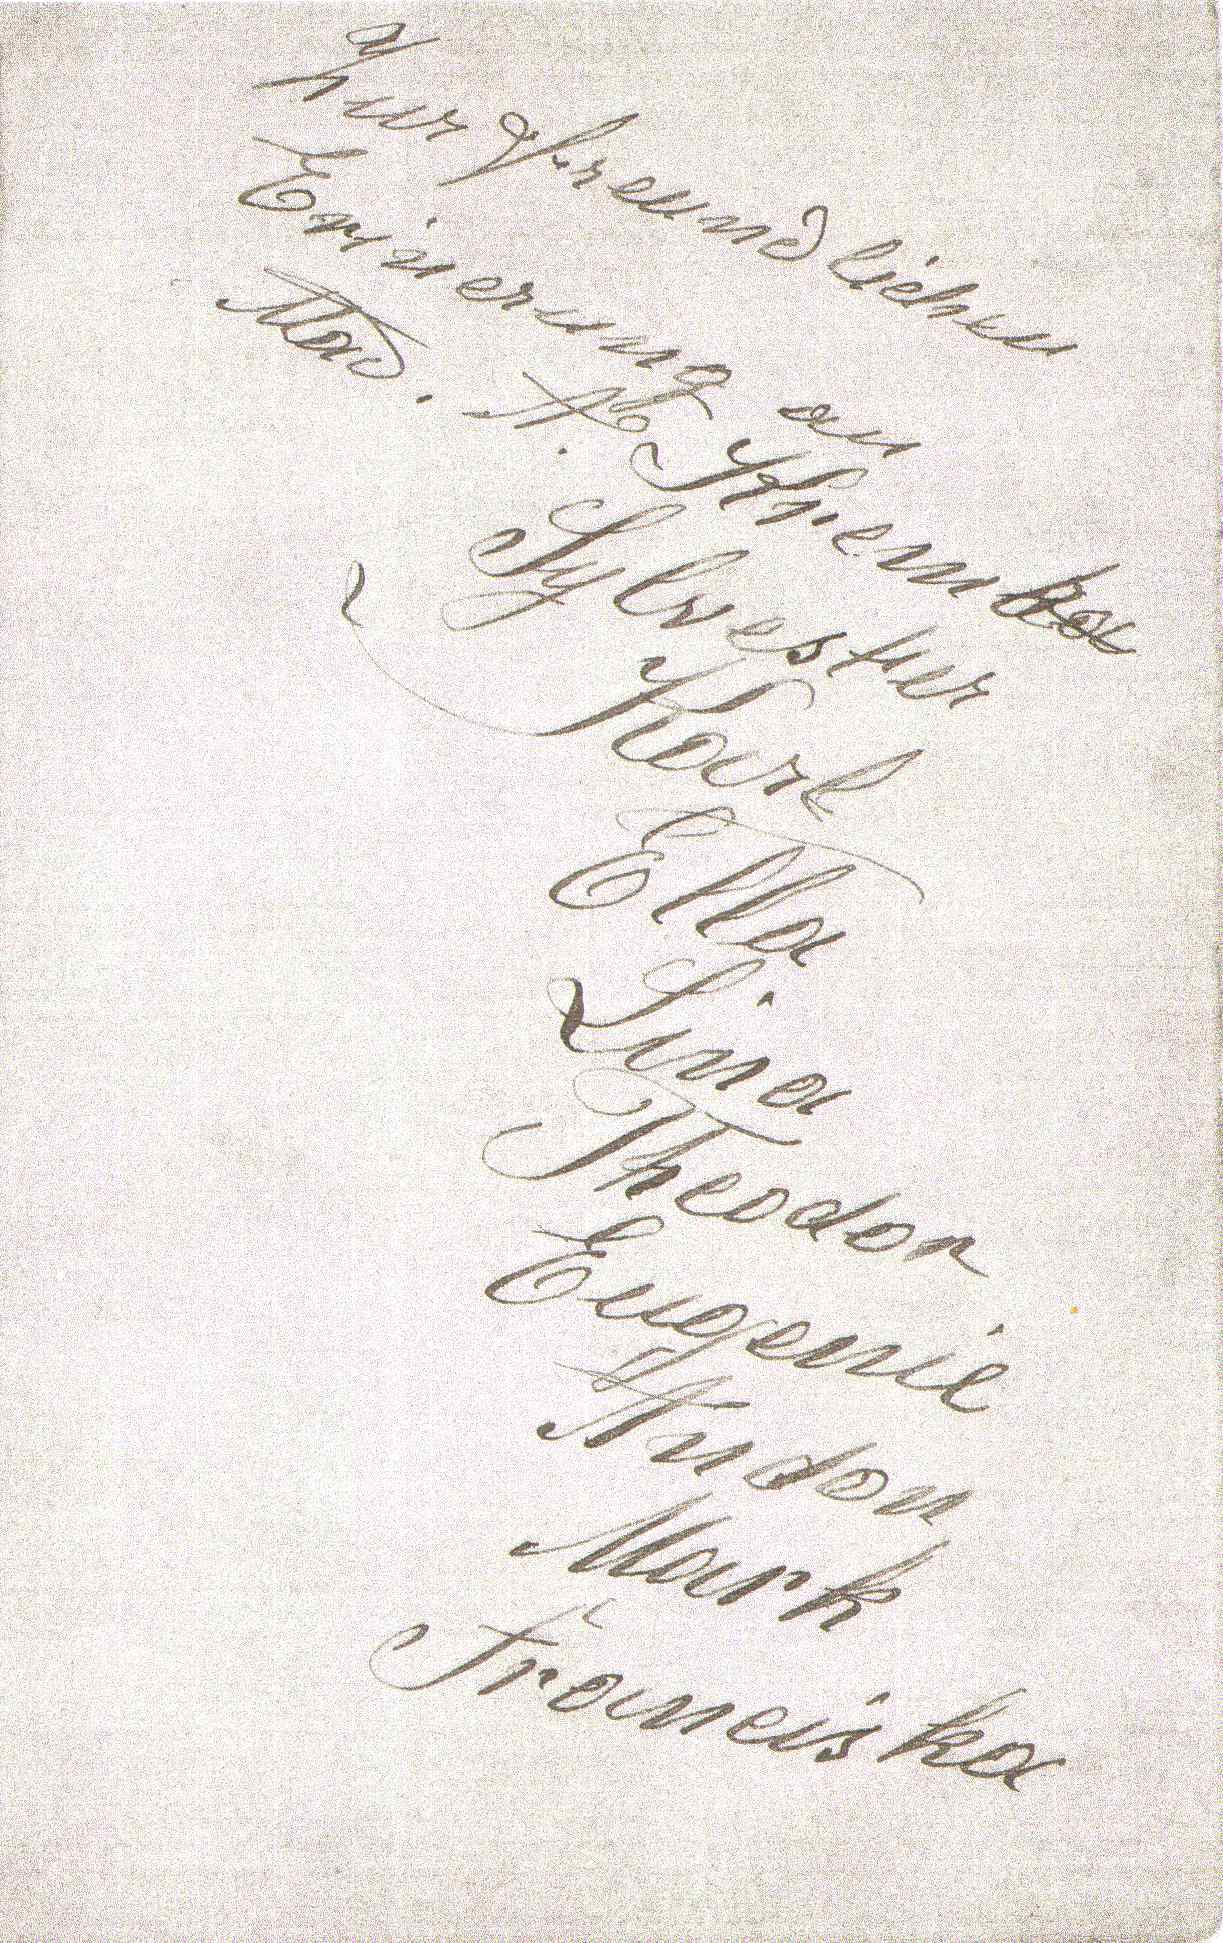 Zur freundlichen
Erinerung an
Mad. A. Themka
Sylvester
Karl
Ella
Lina
Theodor
Eugenie
Andon
Mark
Franciska